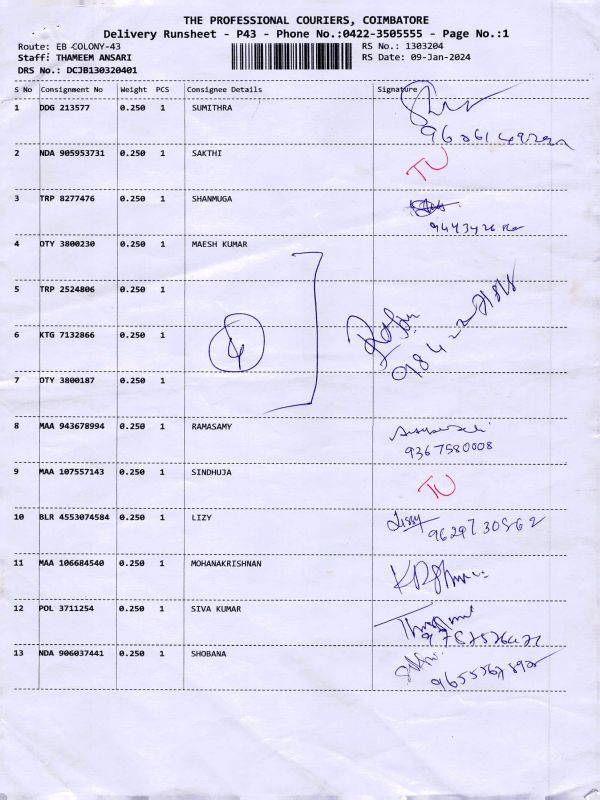 THE PROFESSIONAL COURIERS, COIMBATORE
Delivery Runsheet - P43 - Phone No.:0422-3505555 - Page No.:1
Route: EB COLONY-43 RS No.: 1303204
Staff: THAMEEM ANSARI RS Date: 09-Jan-2024
DRS No.: DCJB130320401
S No Consignment No Weight PCS Consignee Details Signature
1 DDG 213577 0.250 1 SUMITHRA
2 NDA 905953731 0.250 1 SAKTHI TU
3 TRP 8277476 0.250 1 SHANMUGA
4 OTY 3800230 0.250 1 MAESH KUMAR
5 TRP 2524806 0.250 1
6 KTG 7132866 0.250 1 4
7 OTY 3800187 0.250 1
8 MAA 943678994 0.250 1 RAMASAMY
9367580008
9 MAA 107557143 0.250 1 SINDHUJA TU
10 BLR 4553074584 0.250 1 LIZY Lissy
9629730862
11 MAA 106684540 0.250 1 MOHANAKRISHNAN
12 POL 3711254 0.250 1 SIVA KUMAR
13 NDA 906037441 0.250 1 SHOBANA